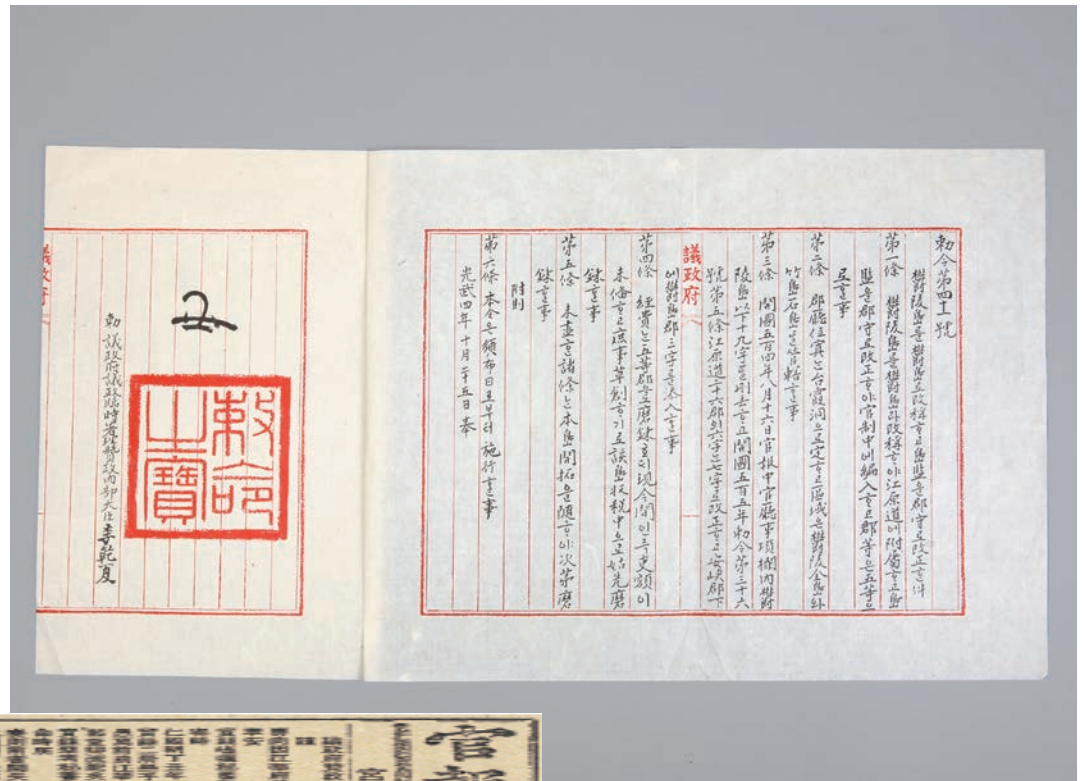 勅令第四十一號
鬱陵島를鬱島로改稱ᄒᆞ고島監을郡守로改正ᄒᆞᆫ件
第一條 鬱陵島를鬱島라改稱ᄒᆞ야江原道에附屬ᄒᆞ고島
監을郡守로改正ᄒᆞ야官制中에編入ᄒᆞ고郡等은五等으
로ᄒᆞᆯ事
第二條 郡廳位寘ᄂᆞᆫ台霞洞으로定ᄒᆞ고區域은鬱陵全島와
竹島石島를管轄ᄒᆞᆯ事
第三條 開國五百四年八月十六日官報中官廳事項欄內鬱
陵島以下十九字를刪去ᄒᆞ고開國五百五年勅令第三十六
號第五條江原道二十六郡의六字ᄂᆞᆫ七字로改正ᄒᆞ고安峽郡下
議政府
에鬱島郡三字를添入ᄒᆞᆯ事
第四條 經費ᄂᆞᆫ五等郡으로磨鍊호ᄃᆡ現今間인즉吏額이
未備ᄒᆞ고庶事草創ᄒᆞ기로該島收稅中으로姑先磨
鍊ᄒᆞᆯ事
第五條 未盡ᄒᆞᆫ諸條ᄂᆞᆫ本島開拓을隨ᄒᆞ야次第磨
鍊ᄒᆞᆯ事
附則
第六條 本令은頒布日로부터施行ᄒᆞᆯ事
光武四年十月二十五日 奉
勅命之寶
勅 議政府議政臨時署理贊政內部大臣李乾夏
議政府
官報